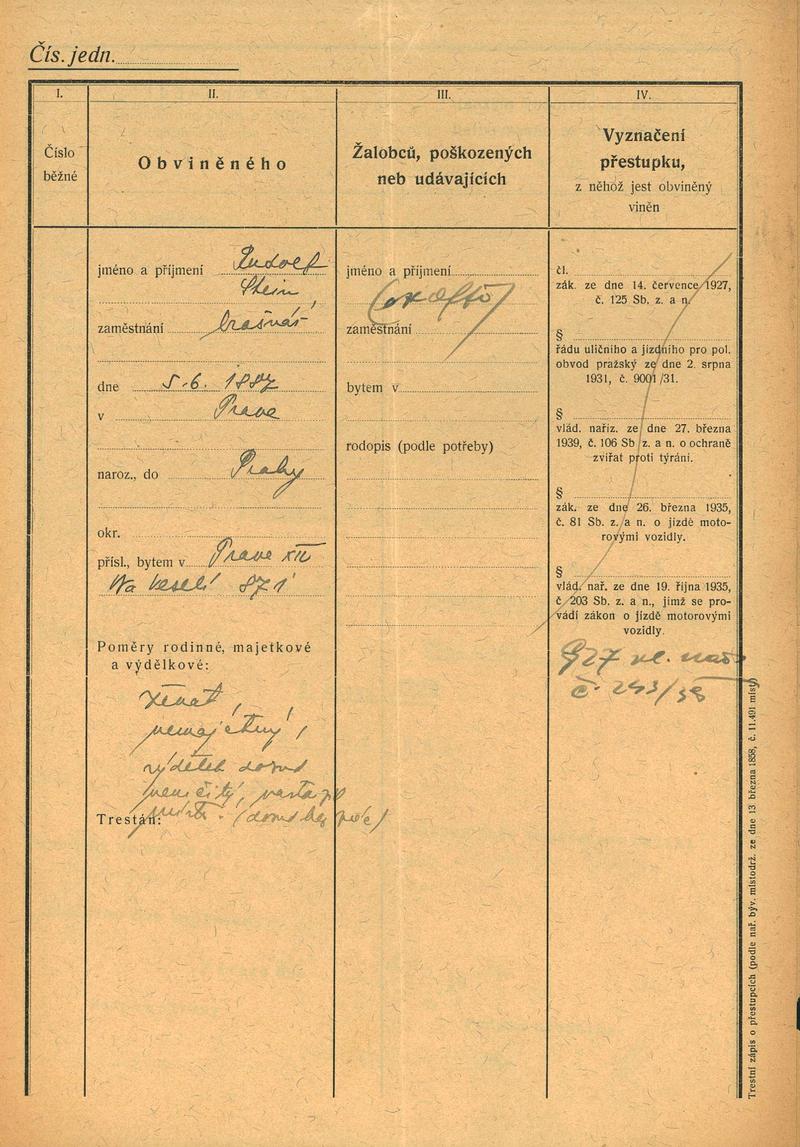 Čís. jedn.
I.
II.
III.
IV.
Číslo
běžné
Obviněného
Žalobců, poškozených
neb udávajících
Vyznačení
přestupku,
z něhož jest obviněný
viněn
jméno a příjmení Rudolf
Stein,
zaměstnání brašnář
dne 5.6. 1887
v Praze
naroz., do Prahy
okr.
přísl., bytem v Praze XII
Na Veselí 871
Poměry rodinné, majetkové
a výdělkové:
ženat,
nemajetný,
výdělek dosud
není čitý,
Trestán:
jméno a příjmení
(ex offo)
zaměstnání
bytem v
rodopis (podle potřeby)
čl.
zák. ze dne 14. července 1927,
č. 125 Sb. z. a n.
§
řádu uličního a jízdního pro pol.
obvod pražský ze dne 2. srpna
1931, č. 9001/31.
§
vlád. naříz. ze dne 27. března
1939, č. 106 Sb. z. a n. o ochraně
zvířat proti týrání.
§
zák. ze dne 26. března 1935,
č. 81 Sb. z. a n. o jízdě moto-
rovými vozidly.
§
vlád. nař. ze dne 19. října 1935,
č. 203 Sb. z. a n., jimž se pro-
vádí zákon o jízdě motorovými
vozidly.
§27 vl. nař.
č.
Trestní zápis o přestupcích (podle nař. býv. místodrž. ze dne 13. března 1858, č. 11.491 místr.)